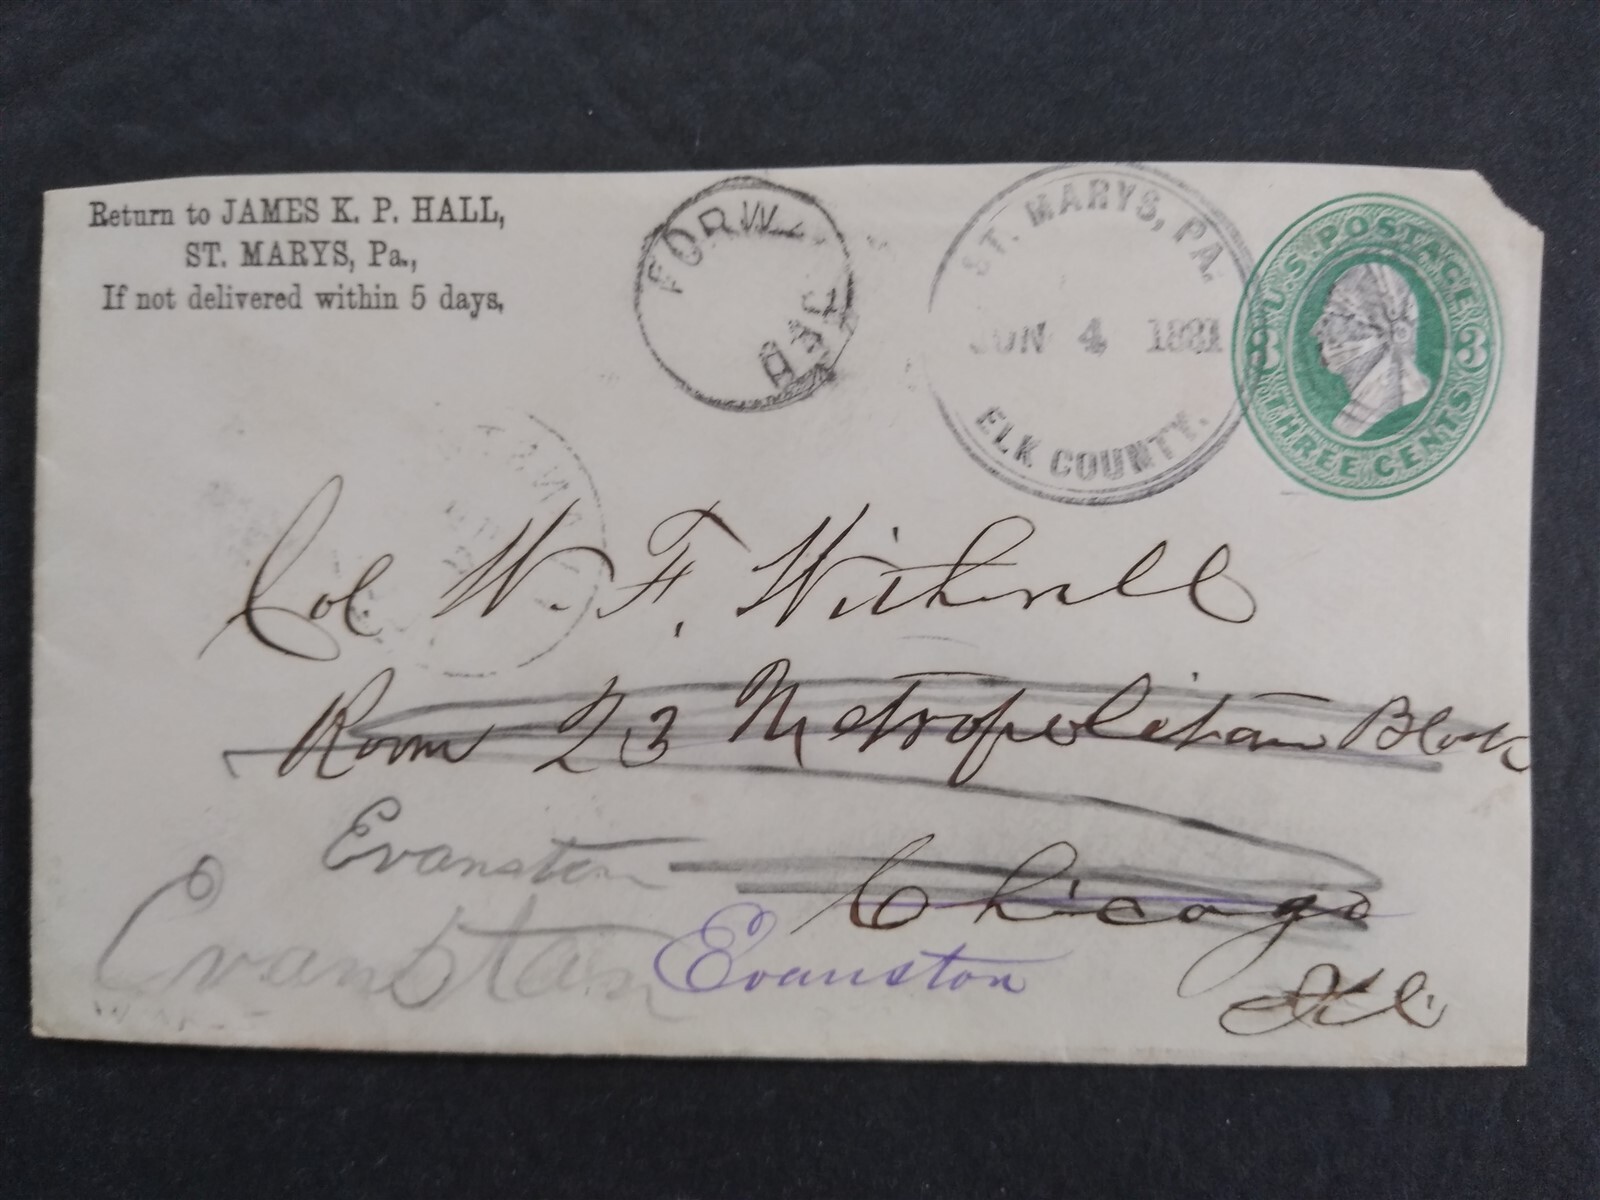 Return to JAMES K. P. HALL,
ST. MARYS, Pa.,
If not delivered within 5 days,
ST. MARYS, PA.
JUN 4 1881
ELK COUNTY.
U.S. POSTAGE
3 3
THREE CENTS
Col W. F.
Room 23 Metropolitan Block
Evanston
Chicago
Evanston
Evanston
Ill.